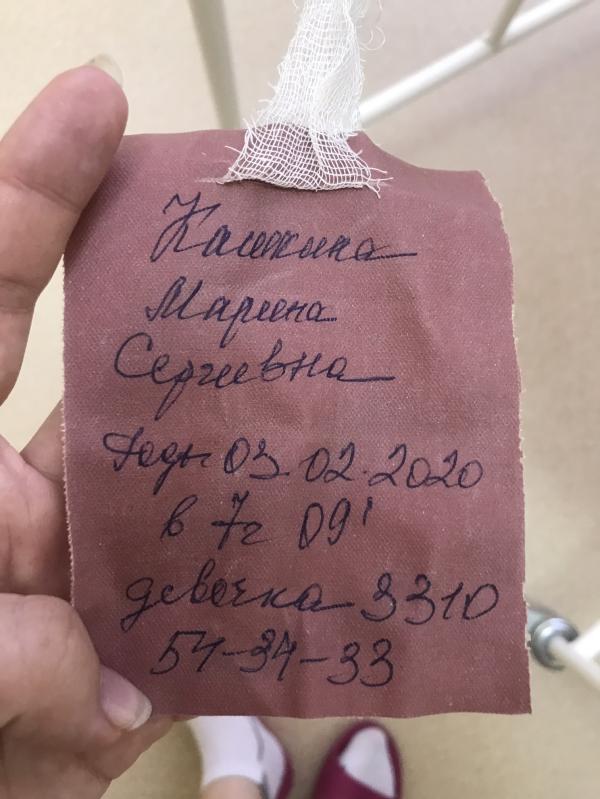 Кашкина
Марина
Сергеевна
Роды 03.02.2020
в 7ч 09'
девочка 3310
54-34-33